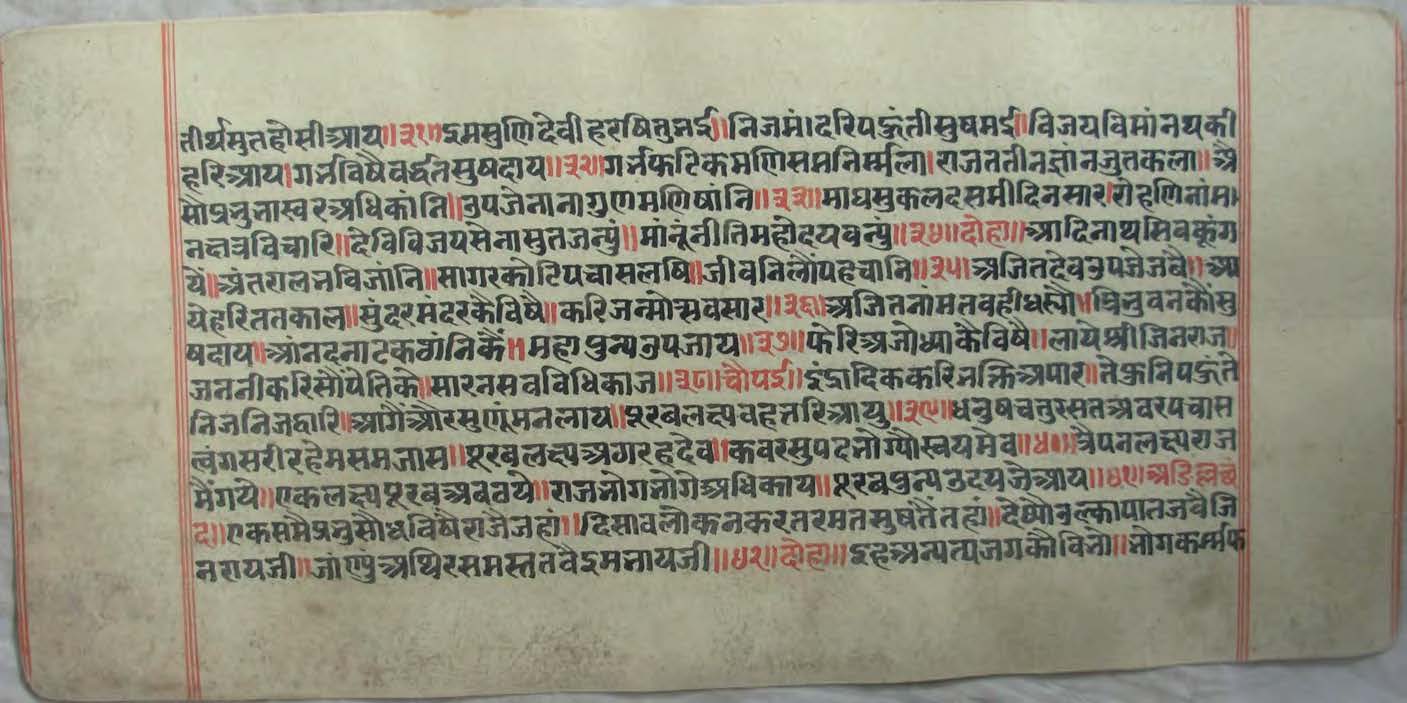 तीर्थसुतहोसीआय॥३१॥इमसुणिदेवीहरषितुभई॥निजमंदरिपहुंतीसुषमई॥विजयविमांनथकी
हरिआय॥गर्भविषैवर्द्धतसुषदाय॥३२॥गर्भफटिकमणिसमनिर्म्मला॥राजततीनज्ञांनजुतकला॥अै
सोप्रभुभास्वरअधिकांनि॥उपजेनानागुणमणिषांनि॥३३॥माघसुकलदसमीदिनसार॥रोहणिनांम
नक्षत्रविचारि॥देविविजयसेनासुतजन्युं॥मांनूंनीतिमहोदयवन्युं॥३४॥दोहा॥आदिनाथसिवकूंग
यें॥अंतरालनविजांनि॥सागरकोटिपचासलषि॥जीवनिलौंपहचानि॥३५॥अजितदेवउपजेजवै॥आ
येहरिततकाल॥सुंदरमंदरकैविषै॥करिजन्मोत्सवसार॥३६॥अजितनांमतवहीधस्यौ॥त्रिभुवनकौंसु
षदाय॥आंनदनाटकठांनिकैं॥महापुन्यउपजाय॥३७॥फेरिअजोध्याकैविषै॥लायेश्रीजिनराज॥
जननीकरिसौंपेतिके॥सारनसवविधिकाज॥३८॥चौपई॥इंद्रादिककरिभक्तिअपार॥तेफुनिपहुंते
निजनिजद्वारि॥आगैऔरसुणूंमनलाय॥पूरबलक्ष्यवहत्तरिआयु॥३९॥धनुषचतुरसतअवरपचास
त्वंगसरीरहेमसमजास॥पूरबलक्ष्यअठारहदेव॥कवरसुपदभोग्यौस्वयमेव॥४०॥त्रेपनलक्ष्यराज
मैंगये॥एकलक्ष्यपूरबअबवये॥राजभोगभोगेअधिकाय॥पूरबपुन्यउदयजेआय॥४१॥अडिल्लछं
द॥एकसमैप्रभुसौधविषैराजैजहां॥दिसावलोकनकरतरमतसुषतैंतहां॥देष्यौउल्कापातजवैजि
नरायजी॥जांण्युंअथिरसमस्ततवैइमभायजी॥४२॥दोहा॥इहअन्यत्यजगकौविभो॥भोगकर्म्मफ